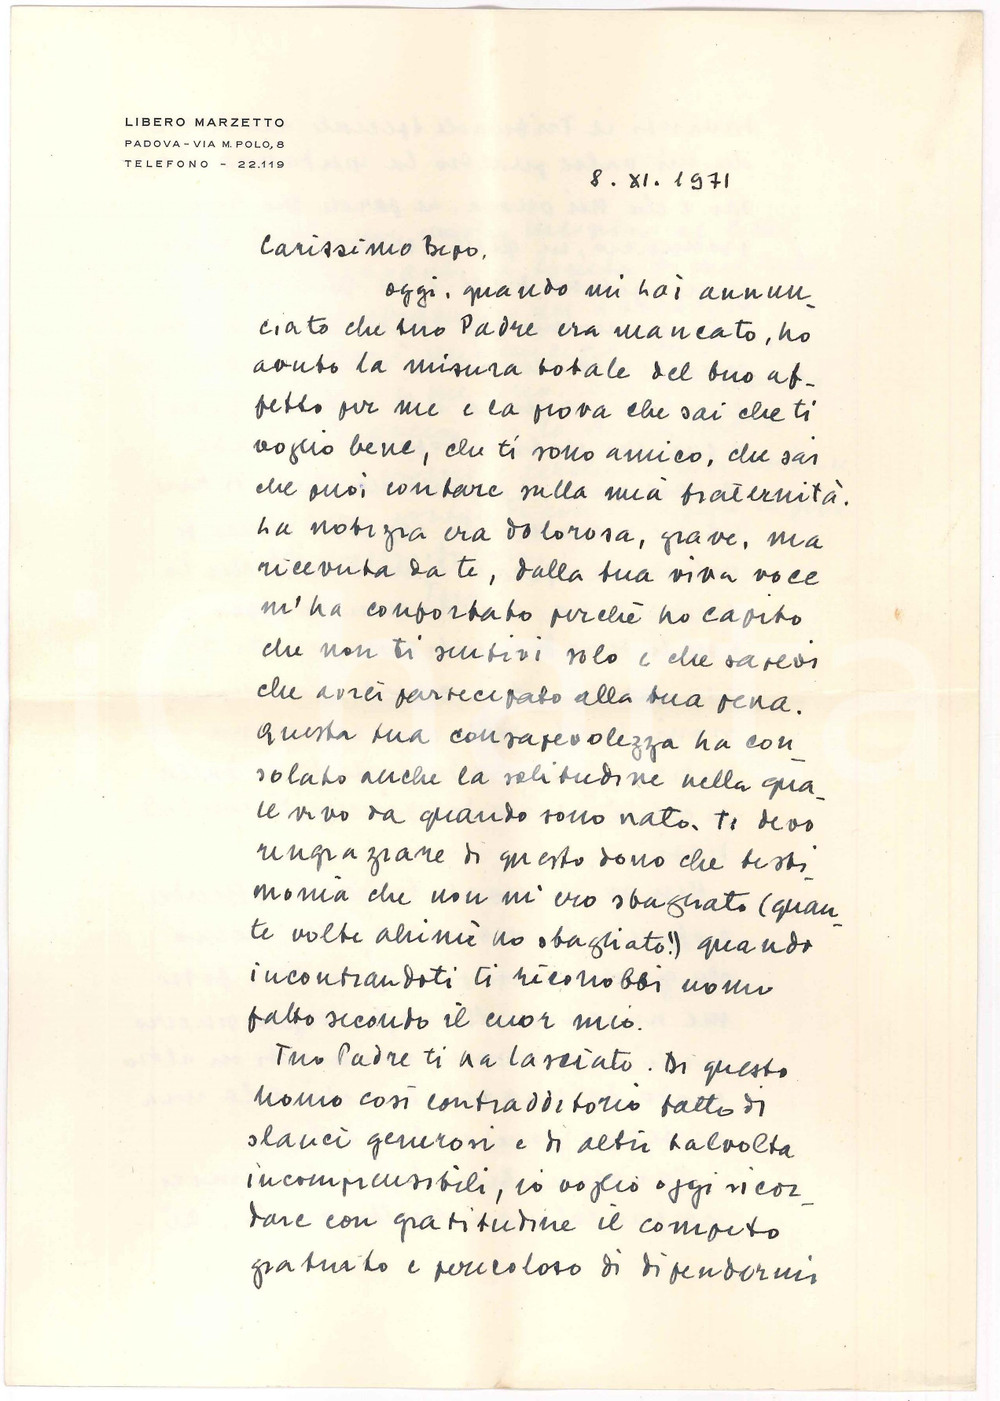 LIBERO MARZETTO
PADOVA - VIA M. POLO, 8
TELEFONO - 22.119
8. XI. 1971
Carissimo Bepo,
oggi, quando mi hai annun_
ciato che tuo Padre era mancato, ho
avuto la misura totale del tuo af_
fetto per me e la prova che sai che ti
voglio bene, che ti sono amico, che sai
che puoi contare sulla mia fraternità.
La notizia era dolorosa, grave, ma
ricevuta da te, dalla tua viva voce
m'ha confortato perchè ho capito
che non ti sentivi solo e che sapevi
che avrei partecipato alla tua pena.
Questa tua consapevolezza ha con_
solato anche la solitudine nella qua_
le vivo da quando sono nato. Ti devo
ringraziare di questo dono che testi_
monia che non m'ero sbagliato (quan_
te volte ahimè ho sbagliato!) quando
incontrandoti ti riconobbi uomo
fatto secondo il cuor mio.
Tuo Padre ti ha lasciato. Di questo
uomo così contradditorio fatto di
slanci generosi e di altri talvolta
incomprensibili, io voglio oggi ricor_
dare con gratitudine il compito
gratuito e pericoloso di difendermi